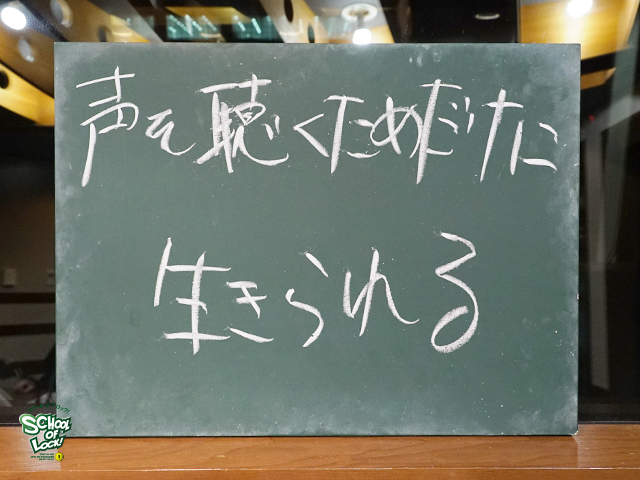 声を聴くためだけに
生きられる
SCHOOL
OF
LOCK!